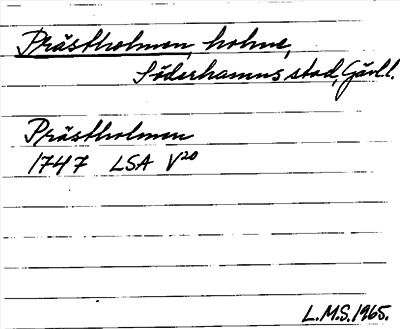 Prästholmen, holme,
Söderhamns stad, Gävl.
Prästholmen
1747 LSA V20
L.M.S. 1965.